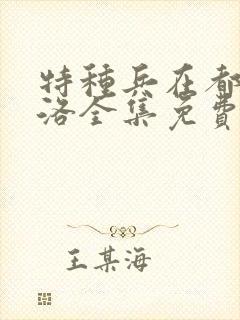 特種兵在都
洛全集免費
王某海